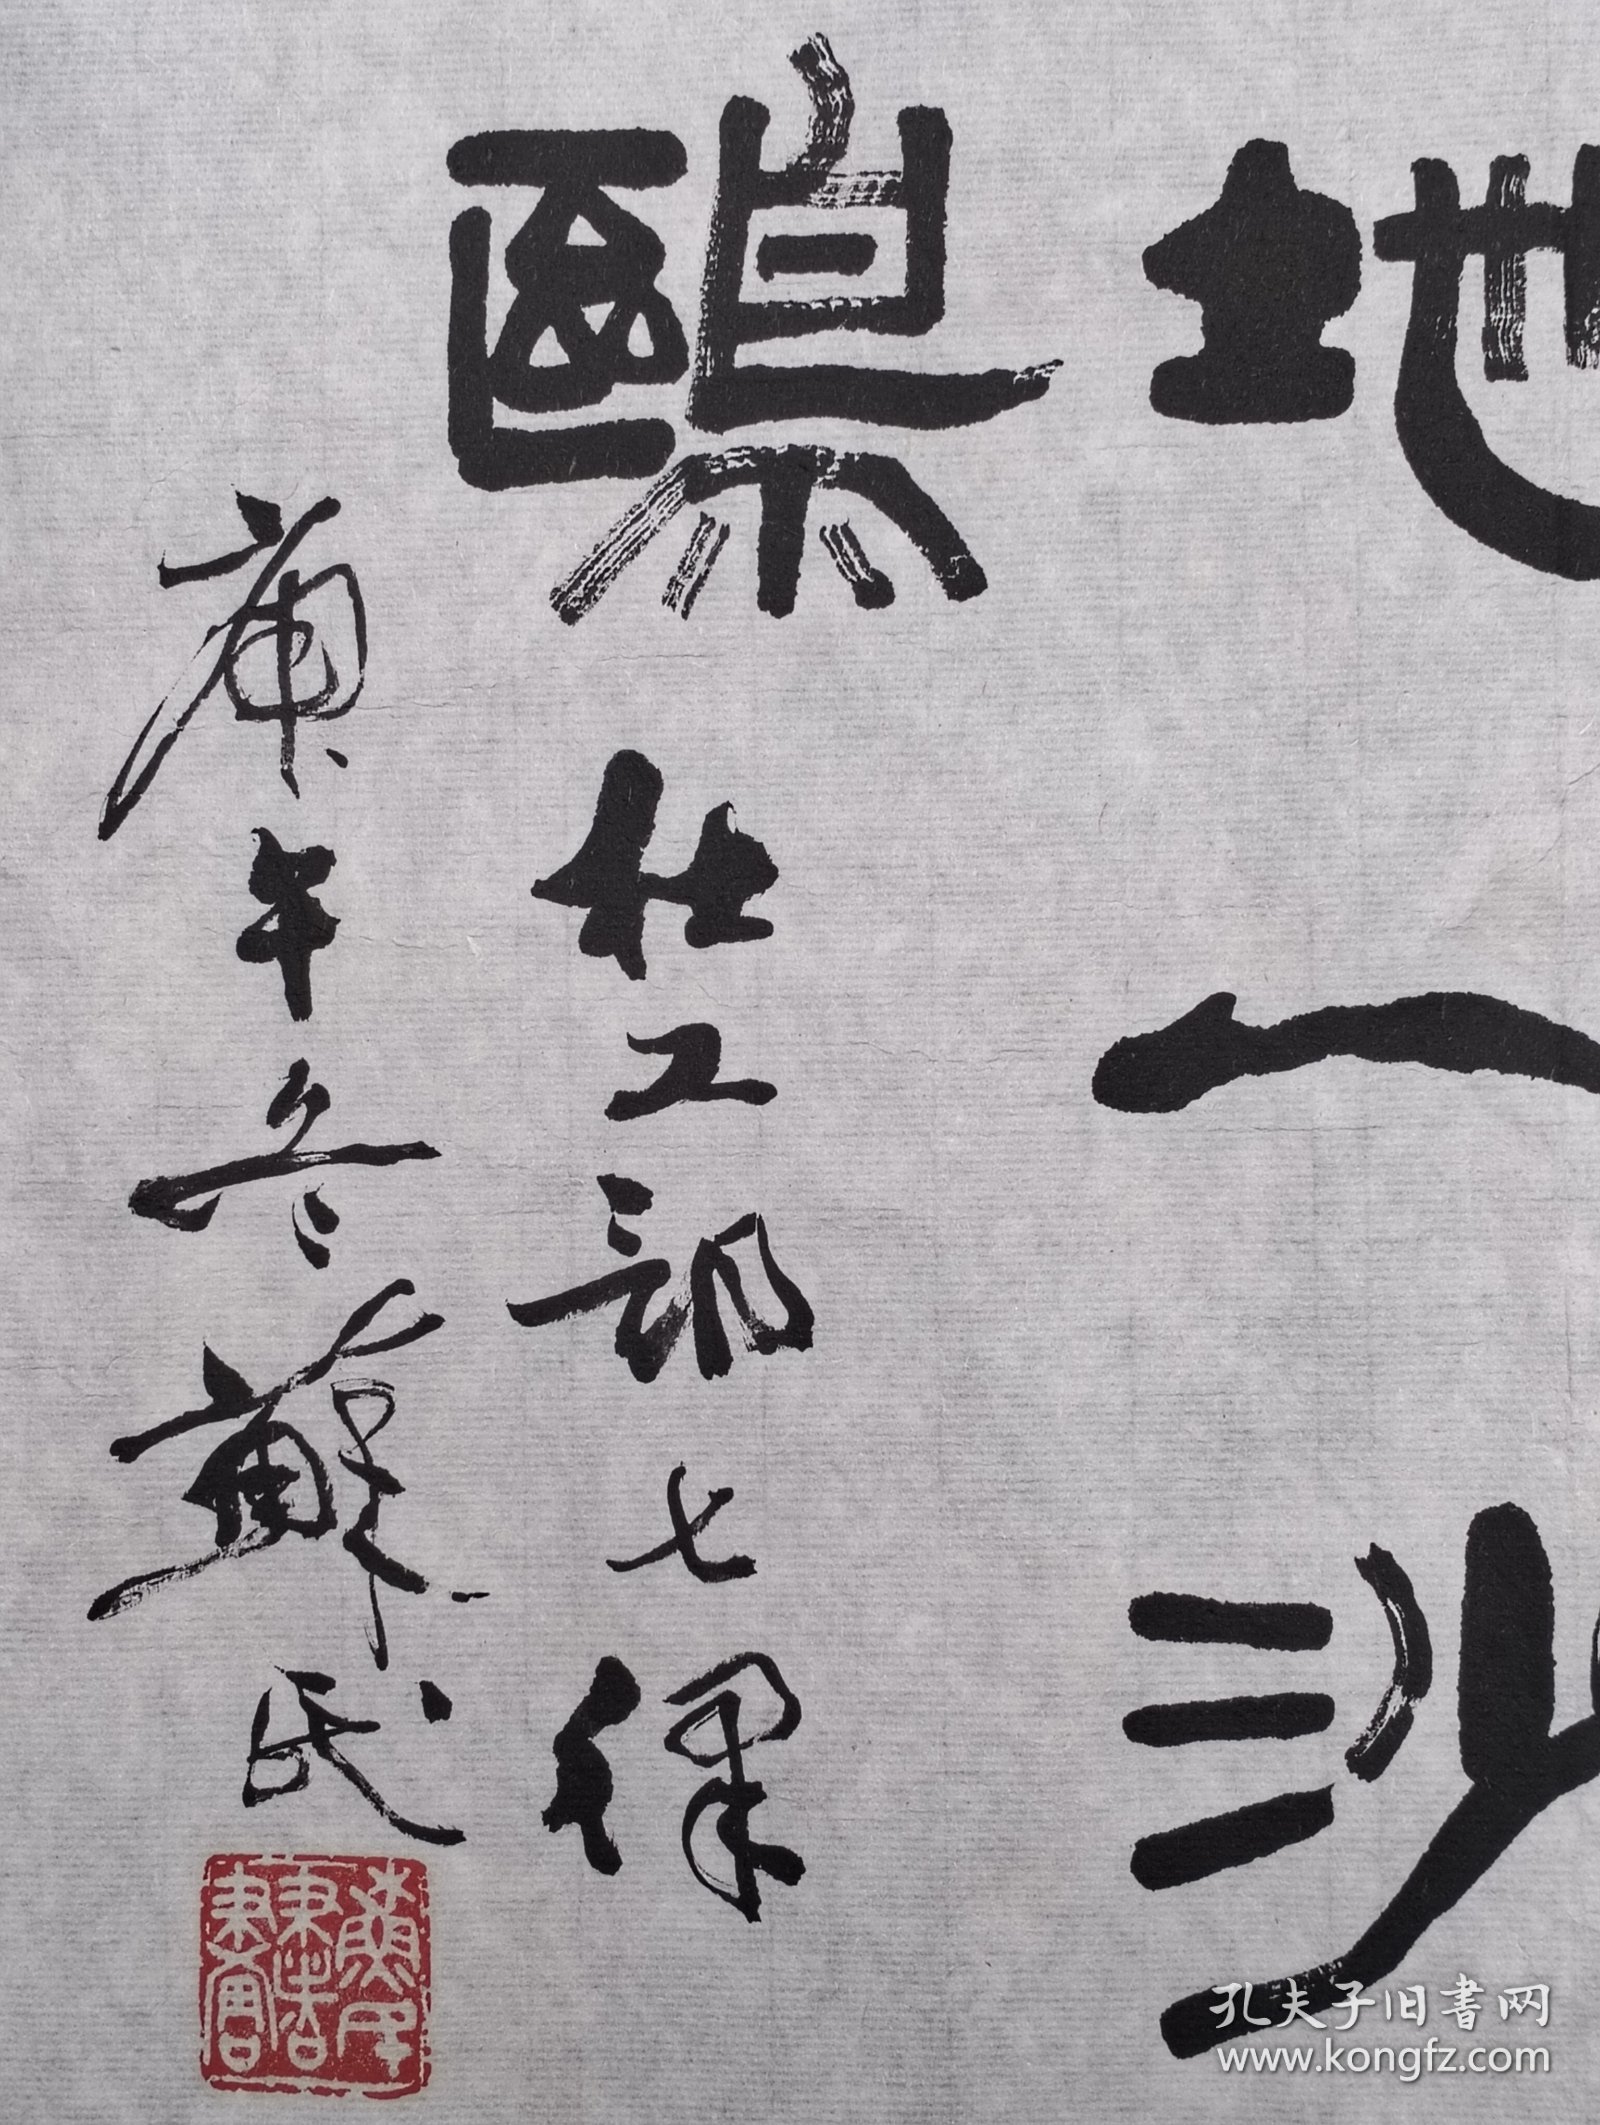 地一沙
鷗
杜工部七律
庚午冬蘇民
孔夫子旧书网
www.kongfz.com